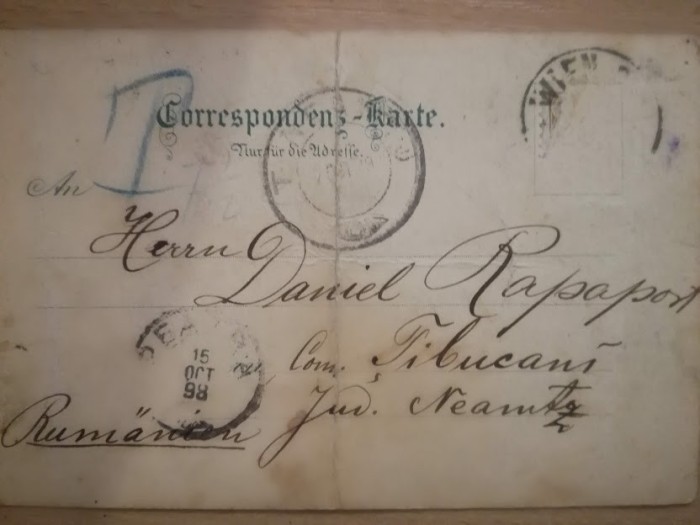 WIEN
T
Correspondenz-Karte.
Nur für die Adresse.
An
Herrn
Daniel Rapaport
Com. Țibucani
15
OCT
98
Jud. Neamtz
Rumänien